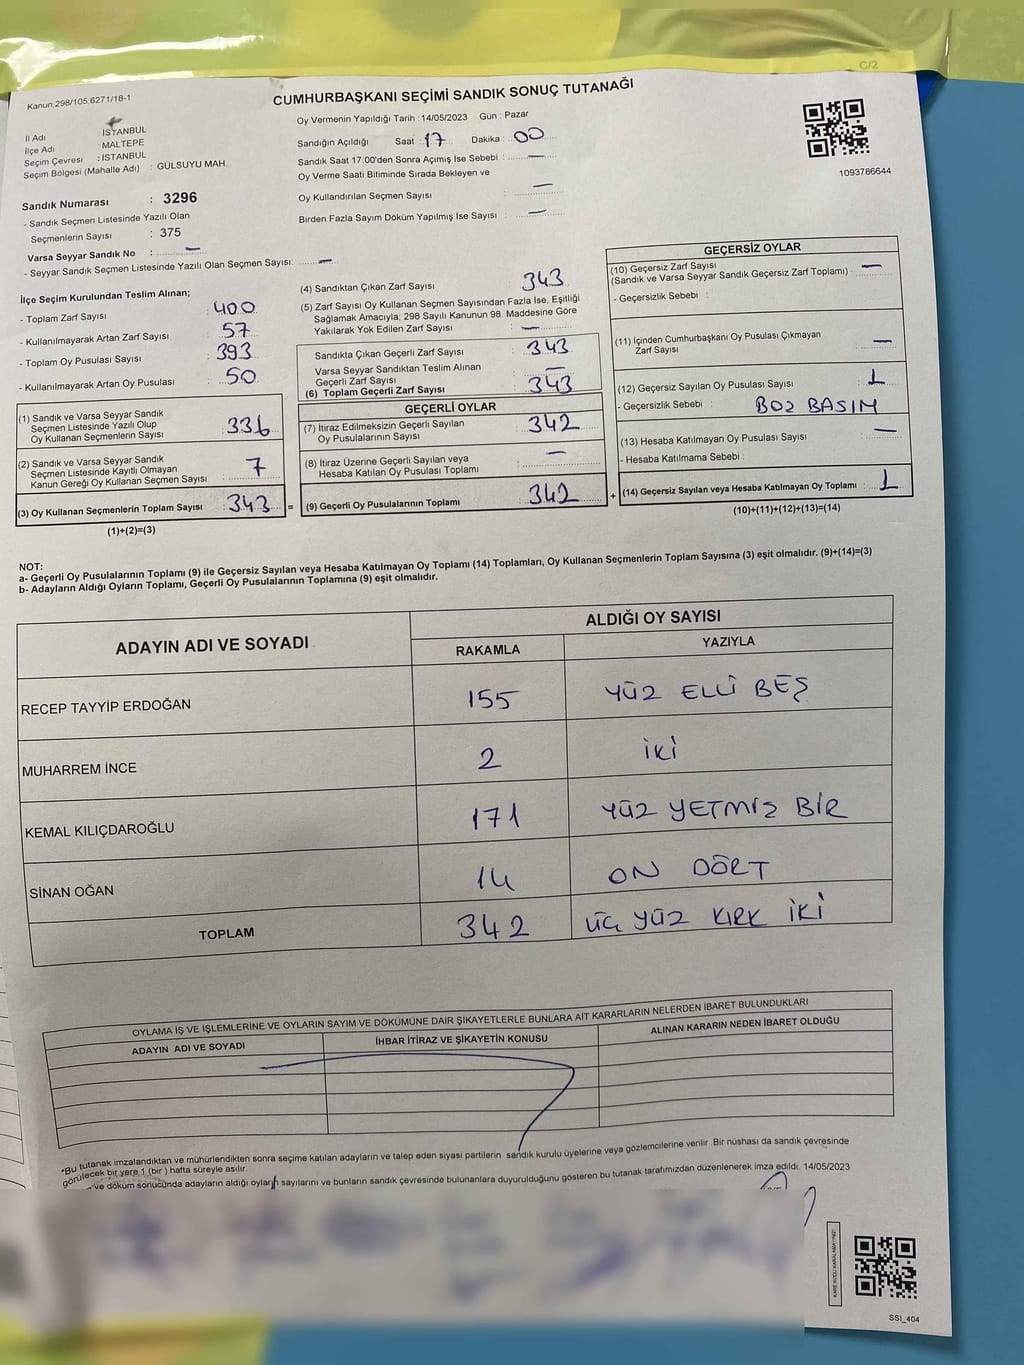 C/2
Kanun,298/105,6271/18-1
CUMHURBAŞKANI SEÇİMİ SANDIK SONUÇ TUTANAĞI
İl Adı : İSTANBUL
İlçe Adı : MALTEPE
Seçim Çevresi : İSTANBUL
Seçim Bölgesi (Mahalle Adı) : GÜLSUYU MAH.
Oy Vermenin Yapıldığı Tarih : 14/05/2023 Gün : Pazar
Sandığın Açıldığı Saat : 17 Dakika : 00
Sandık Saat 17:00'den Sonra Açımış İse Sebebi : —
Oy Verme Saati Bitiminde Sırada Bekleyen ve
Oy Kullandırılan Seçmen Sayısı : —
Birden Fazla Sayım Döküm Yapılmış İse Sayısı : —
1093786644
Sandık Numarası : 3296
- Sandık Seçmen Listesinde Yazılı Olan
Seçmenlerin Sayısı : 375
Varsa Seyyar Sandık No : —
- Seyyar Sandık Seçmen Listesinde Yazılı Olan Seçmen Sayısı: —
İlçe Seçim Kurulundan Teslim Alınan;
- Toplam Zarf Sayısı : 400
- Kullanılmayarak Artan Zarf Sayısı : 57
- Toplam Oy Pusulası Sayısı : 393
- Kullanılmayarak Artan Oy Pusulası : 50
(1) Sandık ve Varsa Seyyar Sandık
Seçmen Listesinde Yazılı Olup
Oy Kullanan Seçmenlerin Sayısı : 336
(2) Sandık ve Varsa Seyyar Sandık
Seçmen Listesinde Kayıtlı Olmayan
Kanun Gereği Oy Kullanan Seçmen Sayısı : 7
(3) Oy Kullanan Seçmenlerin Toplam Sayısı : 343 =
(1)+(2)=(3)
(4) Sandıktan Çıkan Zarf Sayısı : 343
(5) Zarf Sayısı Oy Kullanan Seçmen Sayısından Fazla İse, Eşitliği
Sağlamak Amacıyla; 298 Sayılı Kanunun 98. Maddesine Göre
Yakılarak Yok Edilen Zarf Sayısı : —
Sandıkta Çıkan Geçerli Zarf Sayısı : 343
Varsa Seyyar Sandıktan Teslim Alınan
Geçerli Zarf Sayısı : —
(6) Toplam Geçerli Zarf Sayısı : 343
GEÇERLİ OYLAR
(7) İtiraz Edilmeksizin Geçerli Sayılan
Oy Pusulalarının Sayısı : 342
(8) İtiraz Üzerine Geçerli Sayılan veya
Hesaba Katılan Oy Pusulası Toplamı : —
(9) Geçerli Oy Pusulalarının Toplamı : 342 +
GEÇERSİZ OYLAR
(10) Geçersiz Zarf Sayısı
(Sandık ve Varsa Seyyar Sandık Geçersiz Zarf Toplamı) : —
- Geçersizlik Sebebi :
(11) İçinden Cumhurbaşkanı Oy Pusulası Çıkmayan
Zarf Sayısı : —
(12) Geçersiz Sayılan Oy Pusulası Sayısı : 1
- Geçersizlik Sebebi : BOZ BASIM
(13) Hesaba Katılmayan Oy Pusulası Sayısı : —
- Hesaba Katılmama Sebebi :
(14) Geçersiz Sayılan veya Hesaba Katılmayan Oy Toplamı : 1
(10)+(11)+(12)+(13)=(14)
NOT:
a- Geçerli Oy Pusulalarının Toplamı (9) ile Geçersiz Sayılan veya Hesaba Katılmayan Oy Toplamı (14) Toplamları, Oy Kullanan Seçmenlerin Toplam Sayısına (3) eşit olmalıdır. (9)+(14)=(3)
b- Adayların Aldığı Oyların Toplamı, Geçerli Oy Pusulalarının Toplamına (9) eşit olmalıdır.
ADAYIN ADI VE SOYADI ALDIĞI OY SAYISI
RAKAMLA YAZIYLA
RECEP TAYYİP ERDOĞAN 155 YÜZ ELLİ BEŞ
MUHARREM İNCE 2 İKİ
KEMAL KILIÇDAROĞLU 171 YÜZ YETMİŞ BİR
SİNAN OĞAN 14 ON DÖRT
TOPLAM 342 ÜÇ YÜZ KIRK İKİ
OYLAMA İŞ VE İŞLEMLERİNE VE OYLARIN SAYIM VE DÖKÜMÜNE DAİR ŞİKAYETLERLE BUNLARA AİT KARARLARIN NELERDEN İBARET BULUNDUKLARI
ADAYIN ADI VE SOYADI İHBAR İTİRAZ VE ŞİKAYETİN KONUSU ALINAN KARARIN NEDEN İBARET OLDUĞU
*Bu tutanak imzalandıktan ve mühürlendikten sonra seçime katılan adayların ve talep eden siyasi partilerin sandık kurulu üyelerine veya gözlemcilerine verilir .Bir nüshası da sandık çevresinde
görülecek bir yere 1 (bir ) hafta süreyle asılır.
ve döküm sonucunda adayların aldığı oyların sayılarını ve bunların sandık çevresinde bulunanlara duyurulduğunu gösteren bu tutanak tarafımızdan düzenlenerek imza edildi. 14/05/2023
KARE KODU KARALAMAYINIZ!
SSI_404